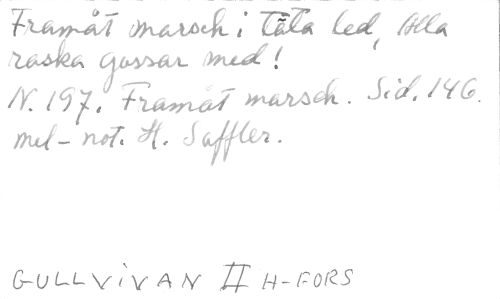 Framåt marsch i täta led, Alla
raska gossar med!
N. 197. Framåt marsch. Sid. 146.
mel-not. H. Saffler.
GULLVIVAN II H-FORS